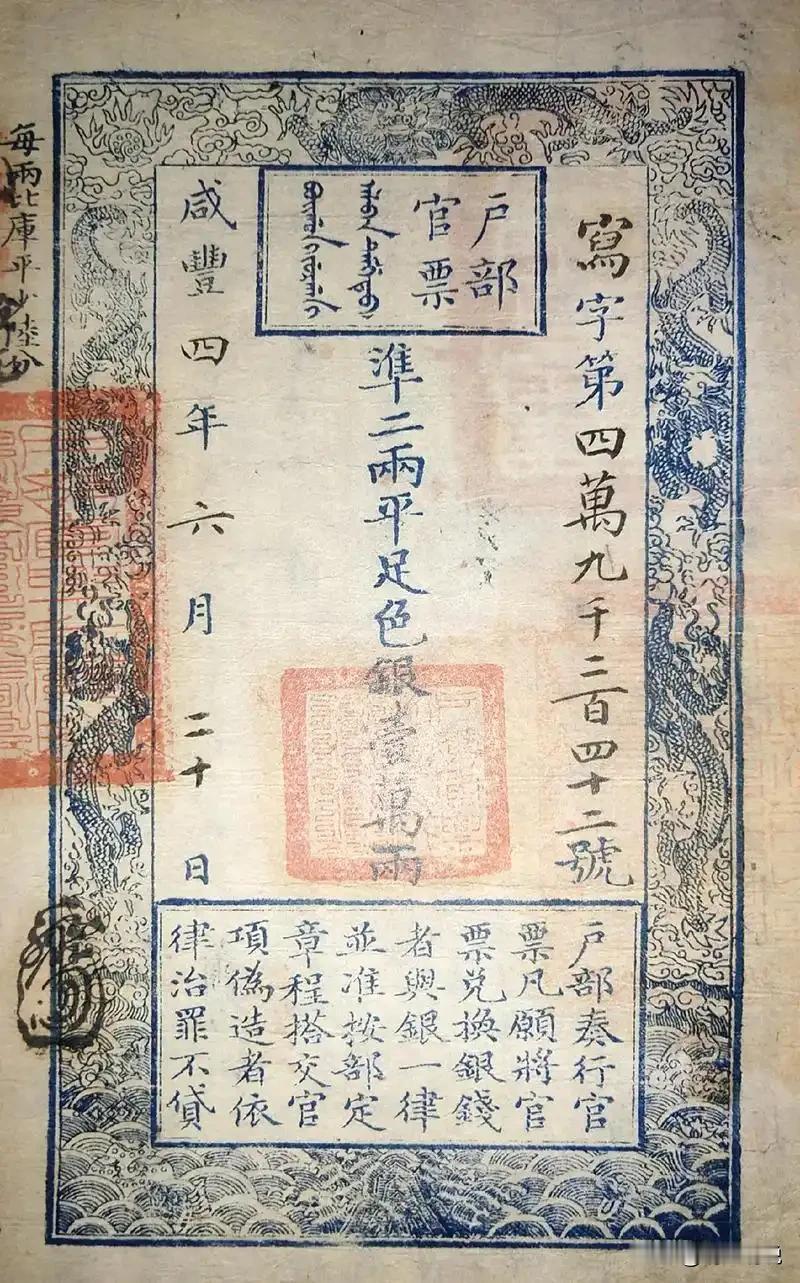 戶部
官票
寫字第四萬九千二百四十二號
準二兩平足色銀壹萬兩
咸豐四年六月二十日
每兩比庫平少陸分
戶部奏行官
票凡願將官
票兌換銀錢
者與銀一律
並准按部定
章程搭交官
項偽造者依
律治罪不貸